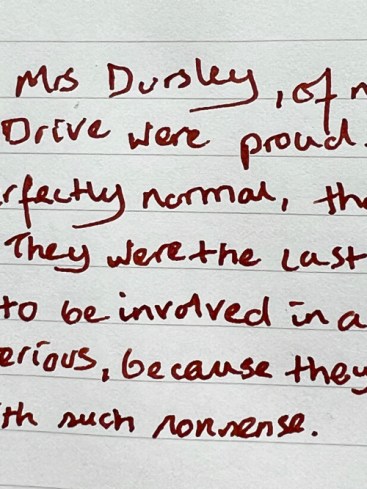 Mrs Dursley, of n
Drive were proud
rfectly normal, tha
They were the last
to be involved in a
erious, because they
th such nonsense.